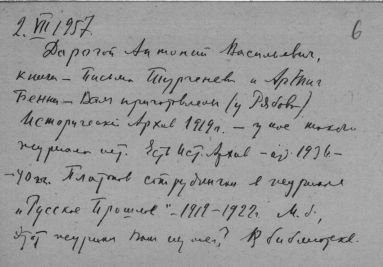 2. VII 1957.
6
Дорогой Антоний Васильевич,
книги – Письма Тургенева и Артиг
Бенни – Вам приготовлены (у Рябова).
Исторический Архив 1919 г. – у нас такого
журнала нет. Есть Ист. Архив – изд. 1936–
–40 гг. Платонов сотрудничал в журнале
„Русское Прошлое" – 1912–1922 г. М. б.,
этот журнал Вам нужен? В библиотеке.